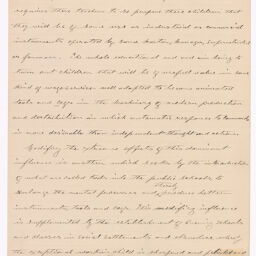 requires these teachers to so prepare these children that
they will be of some use as industrial or commercial
instruments operated by some master, manager, superintendent
or foreman. The whole educational end and aim being to
turn out children that will be of useful value in some
kind of wage service well adapted to become animated
tools and cogs in the machinery of modern production
and distribution in which automatic response to commands
is more desirable than independent thought and action.
Modifying the extreme effects of this dominant
influence in matters which seeks by the introduction
of what are called tools into the public schools to
enlarge the mental processes and produce better
instruments, tools and cogs. This modifying influence
is supplemented by the establishment of evening schools
and classes in social settlements and elsewhere where
the exceptional working child is sharpened and polished